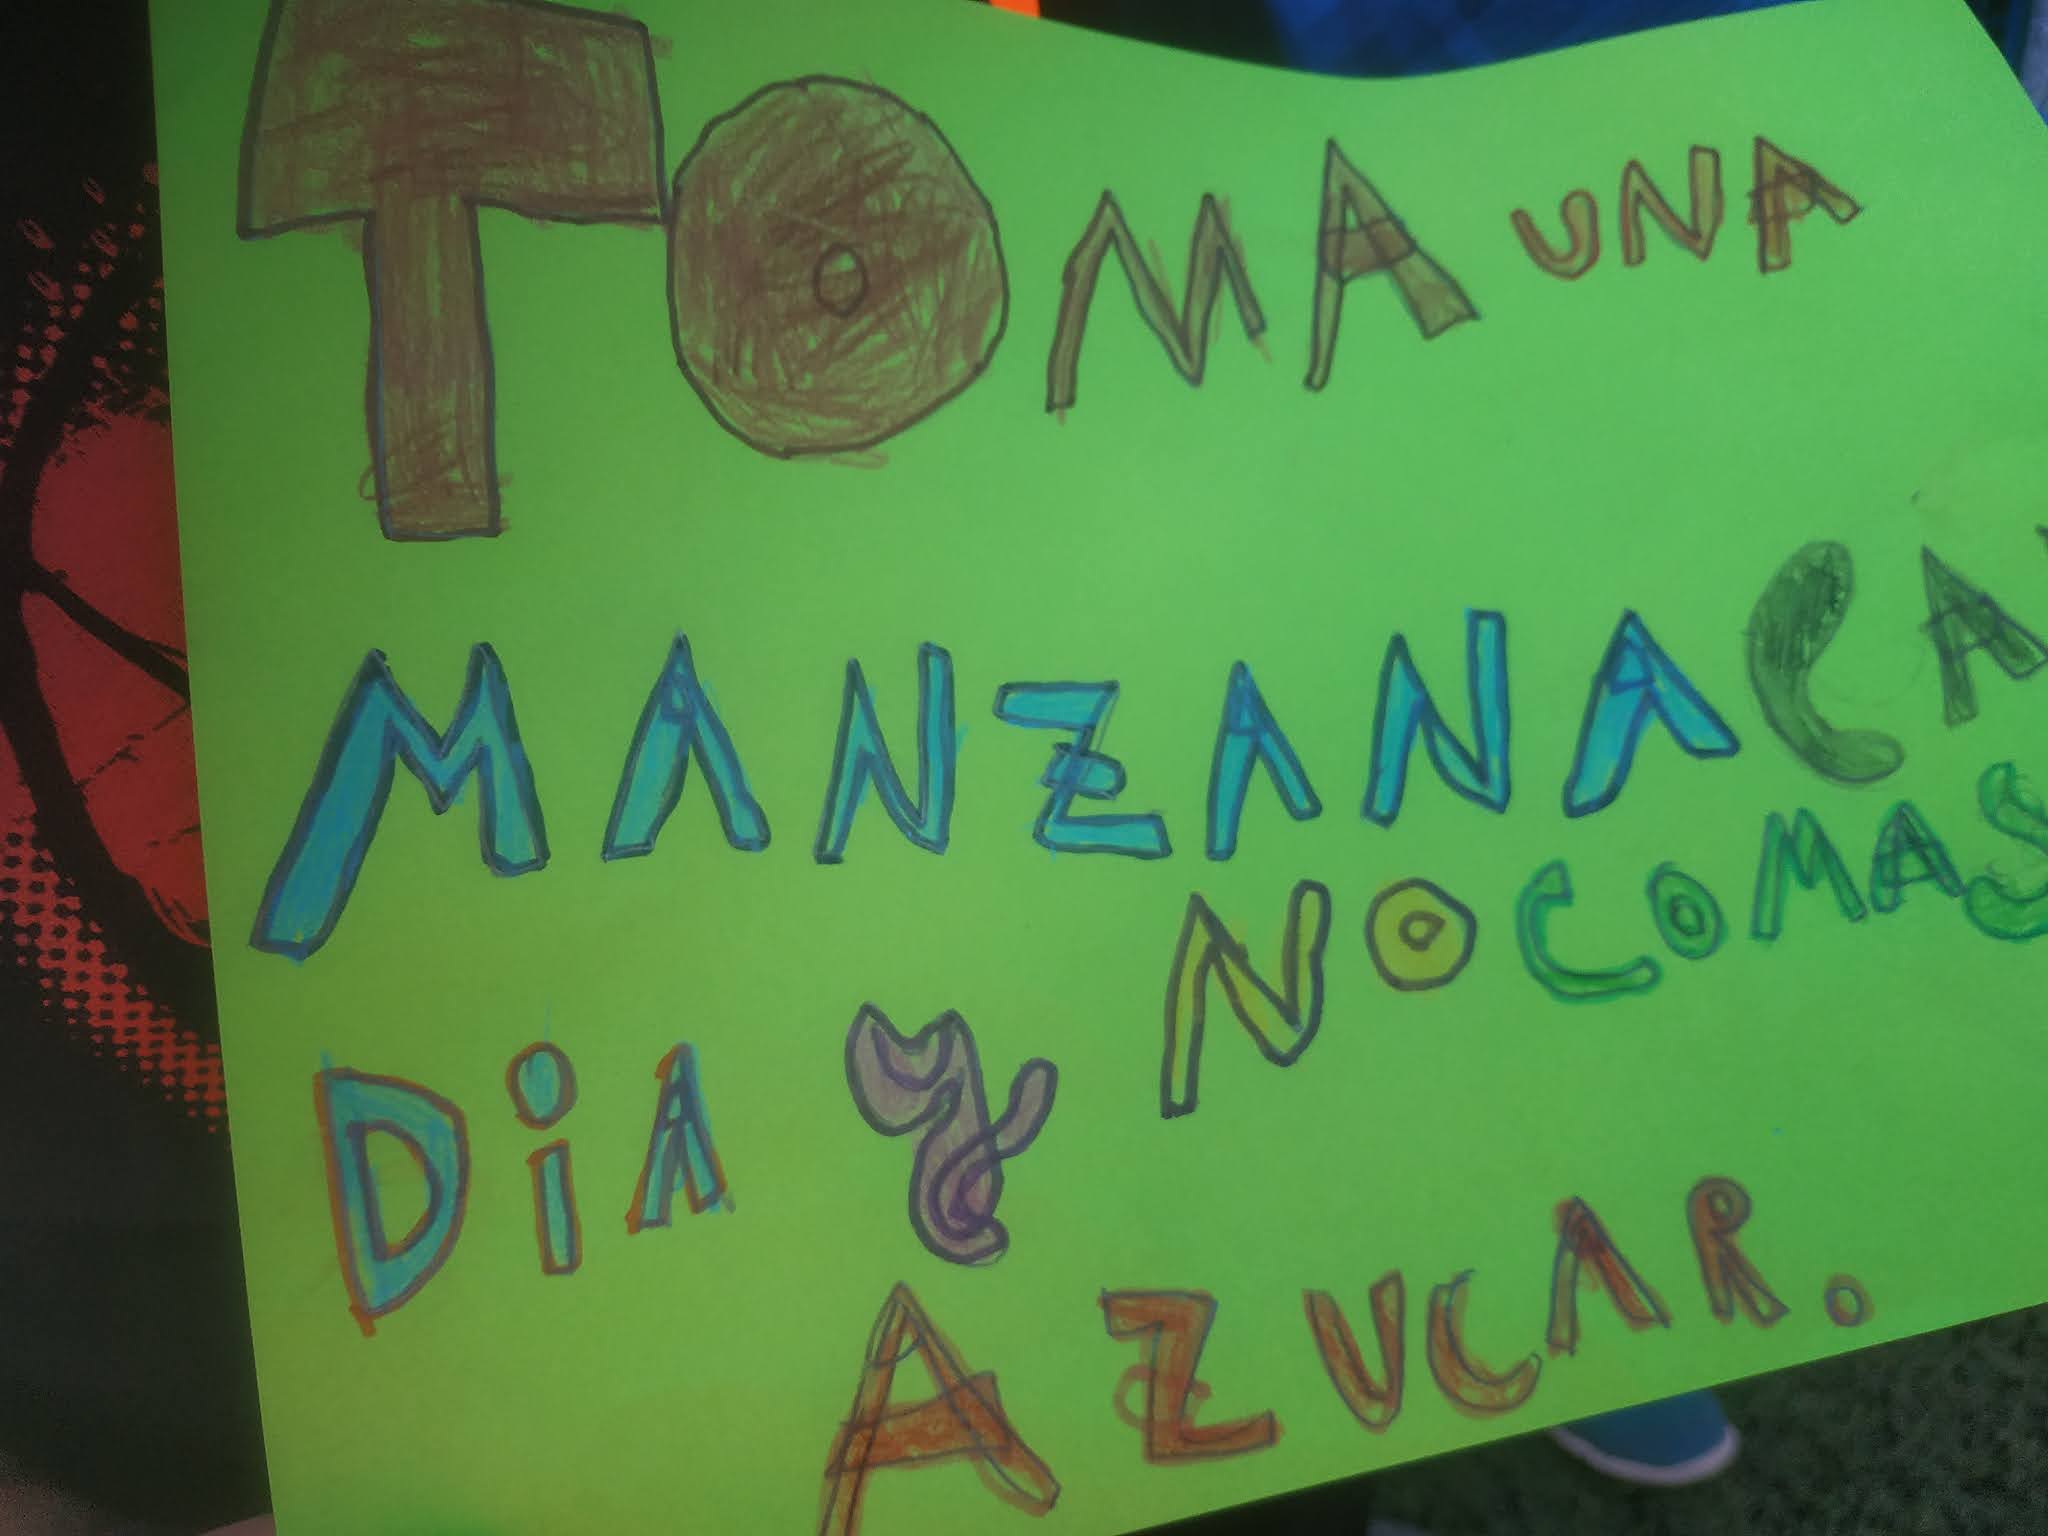 TOMA UNA
MANZANA CA
NO COMAS
DiA Y
AZUCAR.